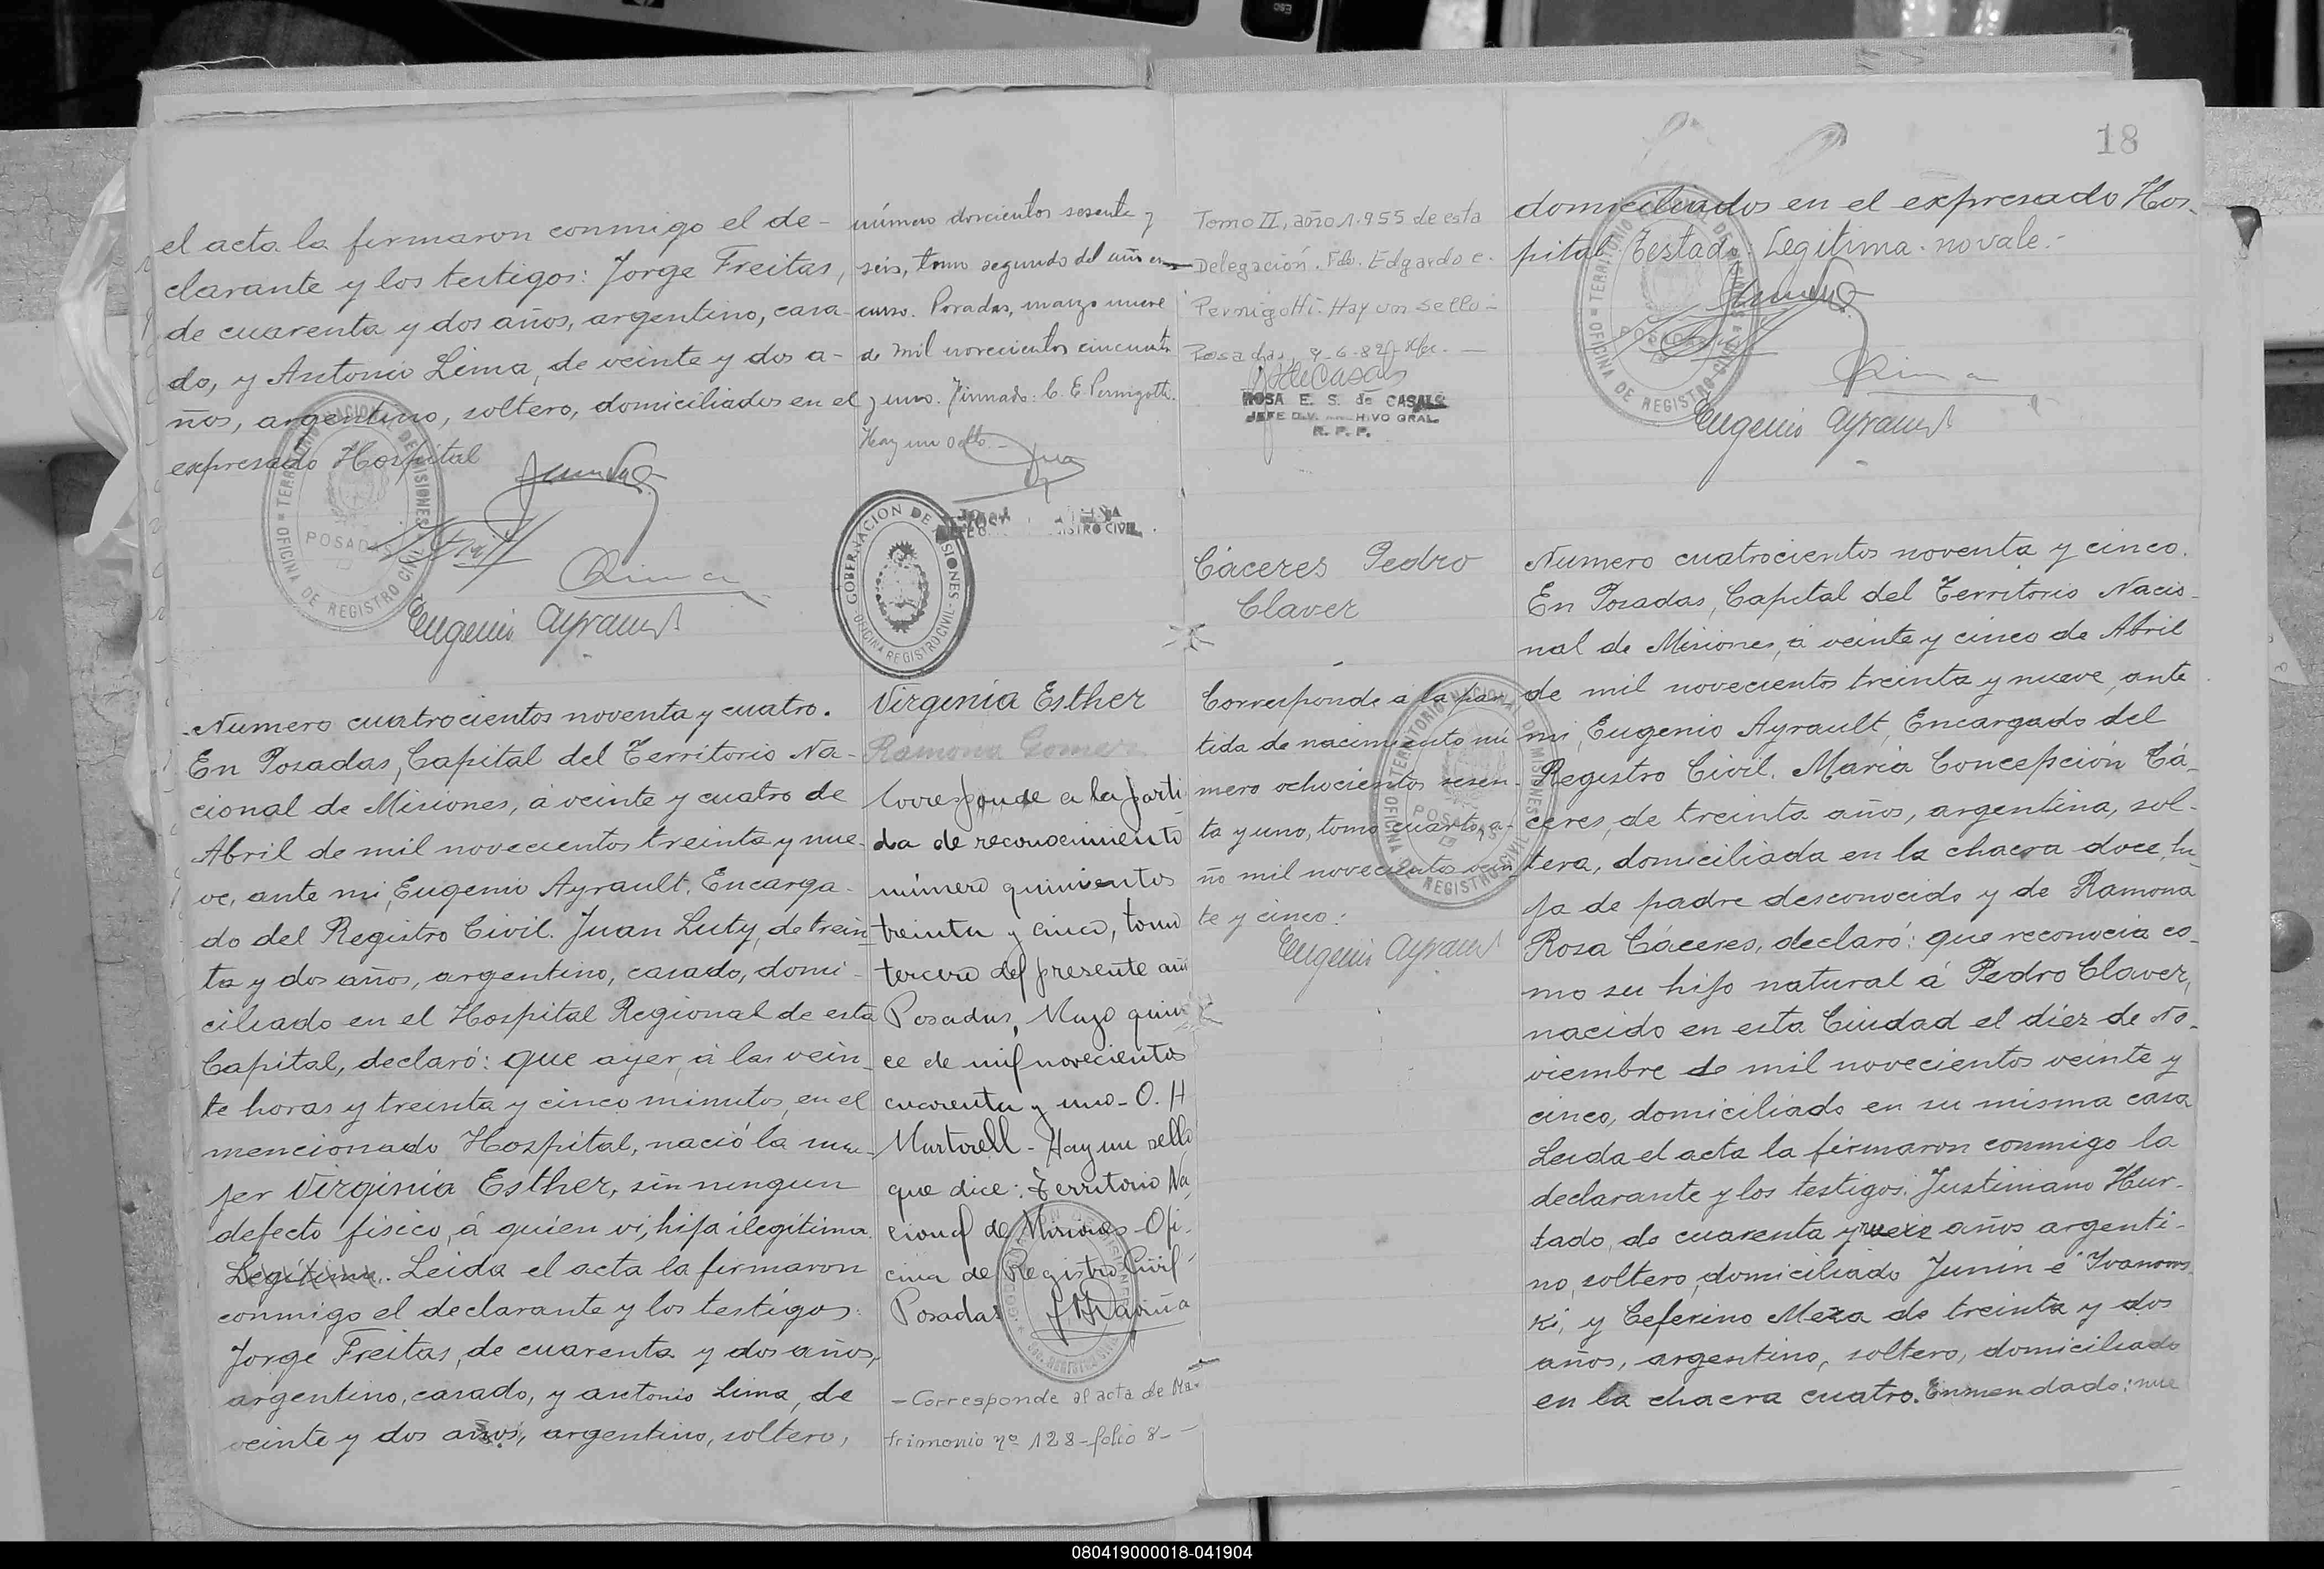 el acta la firmaron conmigo el de-
clarante y los testigos: Jorge Freitas,
de cuarenta y dos años, argentino, casa-
do, y Antonio Lima, de veinte y dos a-
ños, argentino, soltero, domiciliados en el
expresado Hospital
TERRITORIO NACIONAL DE MISIONES
POSADAS
OFICINA DE REGISTRO CIVIL
Lima
Eugenio Ayrault
Numero cuatrocientos noventa y cuatro.
En Posadas, Capital del Territorio Na-
cional de Misiones, á veinte y cuatro de
Abril de mil novecientos treinta y nue-
ve, ante mi, Eugenio Ayrault, Encarga-
do del Registro Civil. Juan Luty, de trein-
ta y dos años, argentino, casado, domi-
ciliado en el Hospital Regional de esta
Capital, declaró: que ayer, á las vein-
te horas y treinta y cinco minutos, en el
mencionado Hospital, nació la mu-
jer Virginia Esther, sin ningun
defecto fisico, á quien vi, hija ilegítima
Legítima. Leida el acta la firmaron
conmigo el declarante y los testigos:
Jorge Freitas, de cuarenta y dos años,
argentino, casado, y Antonio Lima, de
veinte y dos años, argentino, soltero,
número doscientos sesenta y
seis, tomo segundo del año en
curso. Posadas, marzo nueve
de mil novecientos cincuenta
y uno. Firmado: C. E. Pernigotti.
Hay un sello.-
GOBERNACION DE MISIONES
OFICINA REGISTRO CIVIL
Virginia Esther
Ramona Gomez
Corresponde a la parti
da de reconocimiento
número quinientos
treinta y cinco, tomo
tercero del presente año
Posadas, Mayo quin
ce de mil novecientos
cuarenta y uno- O. H
Martorell - Hay un sello
que dice: Territorio Na
cional de Misiones- Ofi-
cina de Registro Civil-
Posadas
- Corresponde al acta de Ma-
trimonio nº 128 - folio 8 -
Tomo II, año 1.955 de esta
Delegación. Fdo. Edgardo C.
Pernigotti. Hay un sello-
Posadas, 9-6-82
ROSA E. S. de CASALS
JEFE DIV. ARCHIVO GRAL.
R. P. P.
Cáceres Pedro
Claver
Corresponde a la par-
tida de nacimiento nú
mero ochocientos sesen-
ta y uno, tomo cuarto, a-
ño mil novecientos vein-
te y cinco:
Eugenio Ayrault
TERRITORIO NACIONAL DE MISIONES
POSADAS
OFICINA DE REGISTRO CIVIL
18
domiciliados en el expresado Hos-
pital. Testado: Legítima. no vale.-
TERRITORIO NACIONAL DE MISIONES
POSADAS
OFICINA DE REGISTRO CIVIL
Lima
Eugenio Ayrault
Numero cuatrocientos noventa y cinco.
En Posadas, Capital del Territorio Nacio-
nal de Misiones, á veinte y cinco de Abril
de mil novecientos treinta y nueve, ante
mi, Eugenio Ayrault, Encargado del
Registro Civil. María Concepción Cá-
ceres, de treinta años, argentina, sol-
tera, domiciliada en la chacra doce, hi-
ja de padre desconocido y de Ramona
Rosa Cáceres, declaró: que reconocía co-
mo su hijo natural á Pedro Claver,
nacido en esta Ciudad el diez de No-
viembre de mil novecientos veinte y
cinco, domiciliado en su misma casa
Leida el acta la firmaron conmigo la
declarante y los testigos: Justiniano Hur-
tado, de cuarenta y nueve años argenti-
no, soltero, domiciliado Junin é Ivanows-
ki, y Ceferino Meza de treinta y dos
años, argentino, soltero, domiciliado
en la chacra cuatro. Enmendado: nue
080419000018-041904